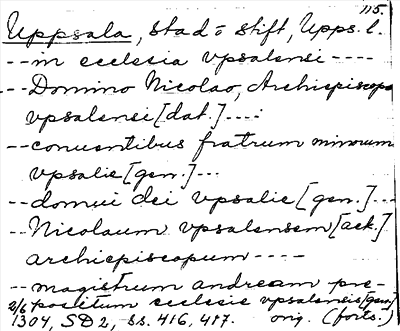 115.
Uppsala, stad o stift, Upps. l.
-- in ecclesia vpsalensi ----
-- Domino Nicolao, Archiepiscopo
vpsalensi [dat.] ....
-- conuentibus fratrum minorum
vpsalie [gen.] ...
-- domui dei vpsalie [gen.] ...
-- Nicolaum vpsalensem [ack.]
archiepiscopum ----
-- magistrum andream pre-
positum ecclesie vpsalensis [gen.]
2/6 1304, SD 2, ss. 416, 417. orig. (forts.)